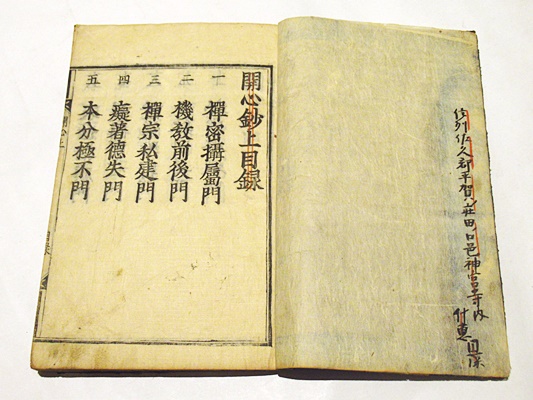 信州佐久郡平賀ノ荘田口邑神宮寺内
付惠
開心鈔上目録
一 禪密攝屬門
二 機教前後門
三 禪宗私建門
四 癡著德失門
五 本分極不門